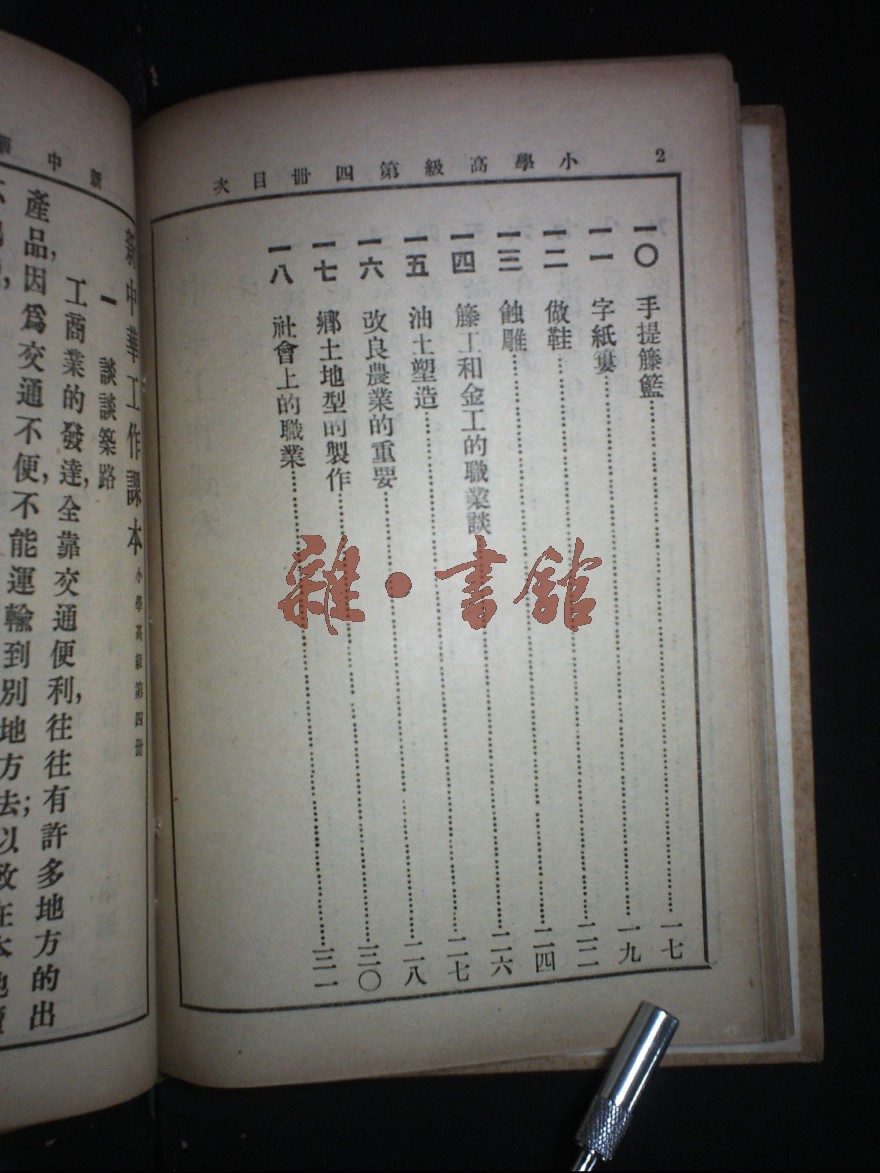 2 小學高級第四冊目次
一〇 手提籐籃……一七
一一 字紙簍……一九
一二 做鞋……二二
一三 蝕雕……二四
一四 籐工和金工的職業談……二六
一五 油土塑造……二七
一六 改良農業的重要……二八
一七 鄉土地型的製作……三〇
一八 社會上的職業……三一
新中華
新中華工作課本 小學高級第四冊
一 談談築路
工商業的發達,全靠交通便利,往往有許多地方的出
產品,因爲交通不便,不能運輸到別地方去;以致在本地賣
雜·書館